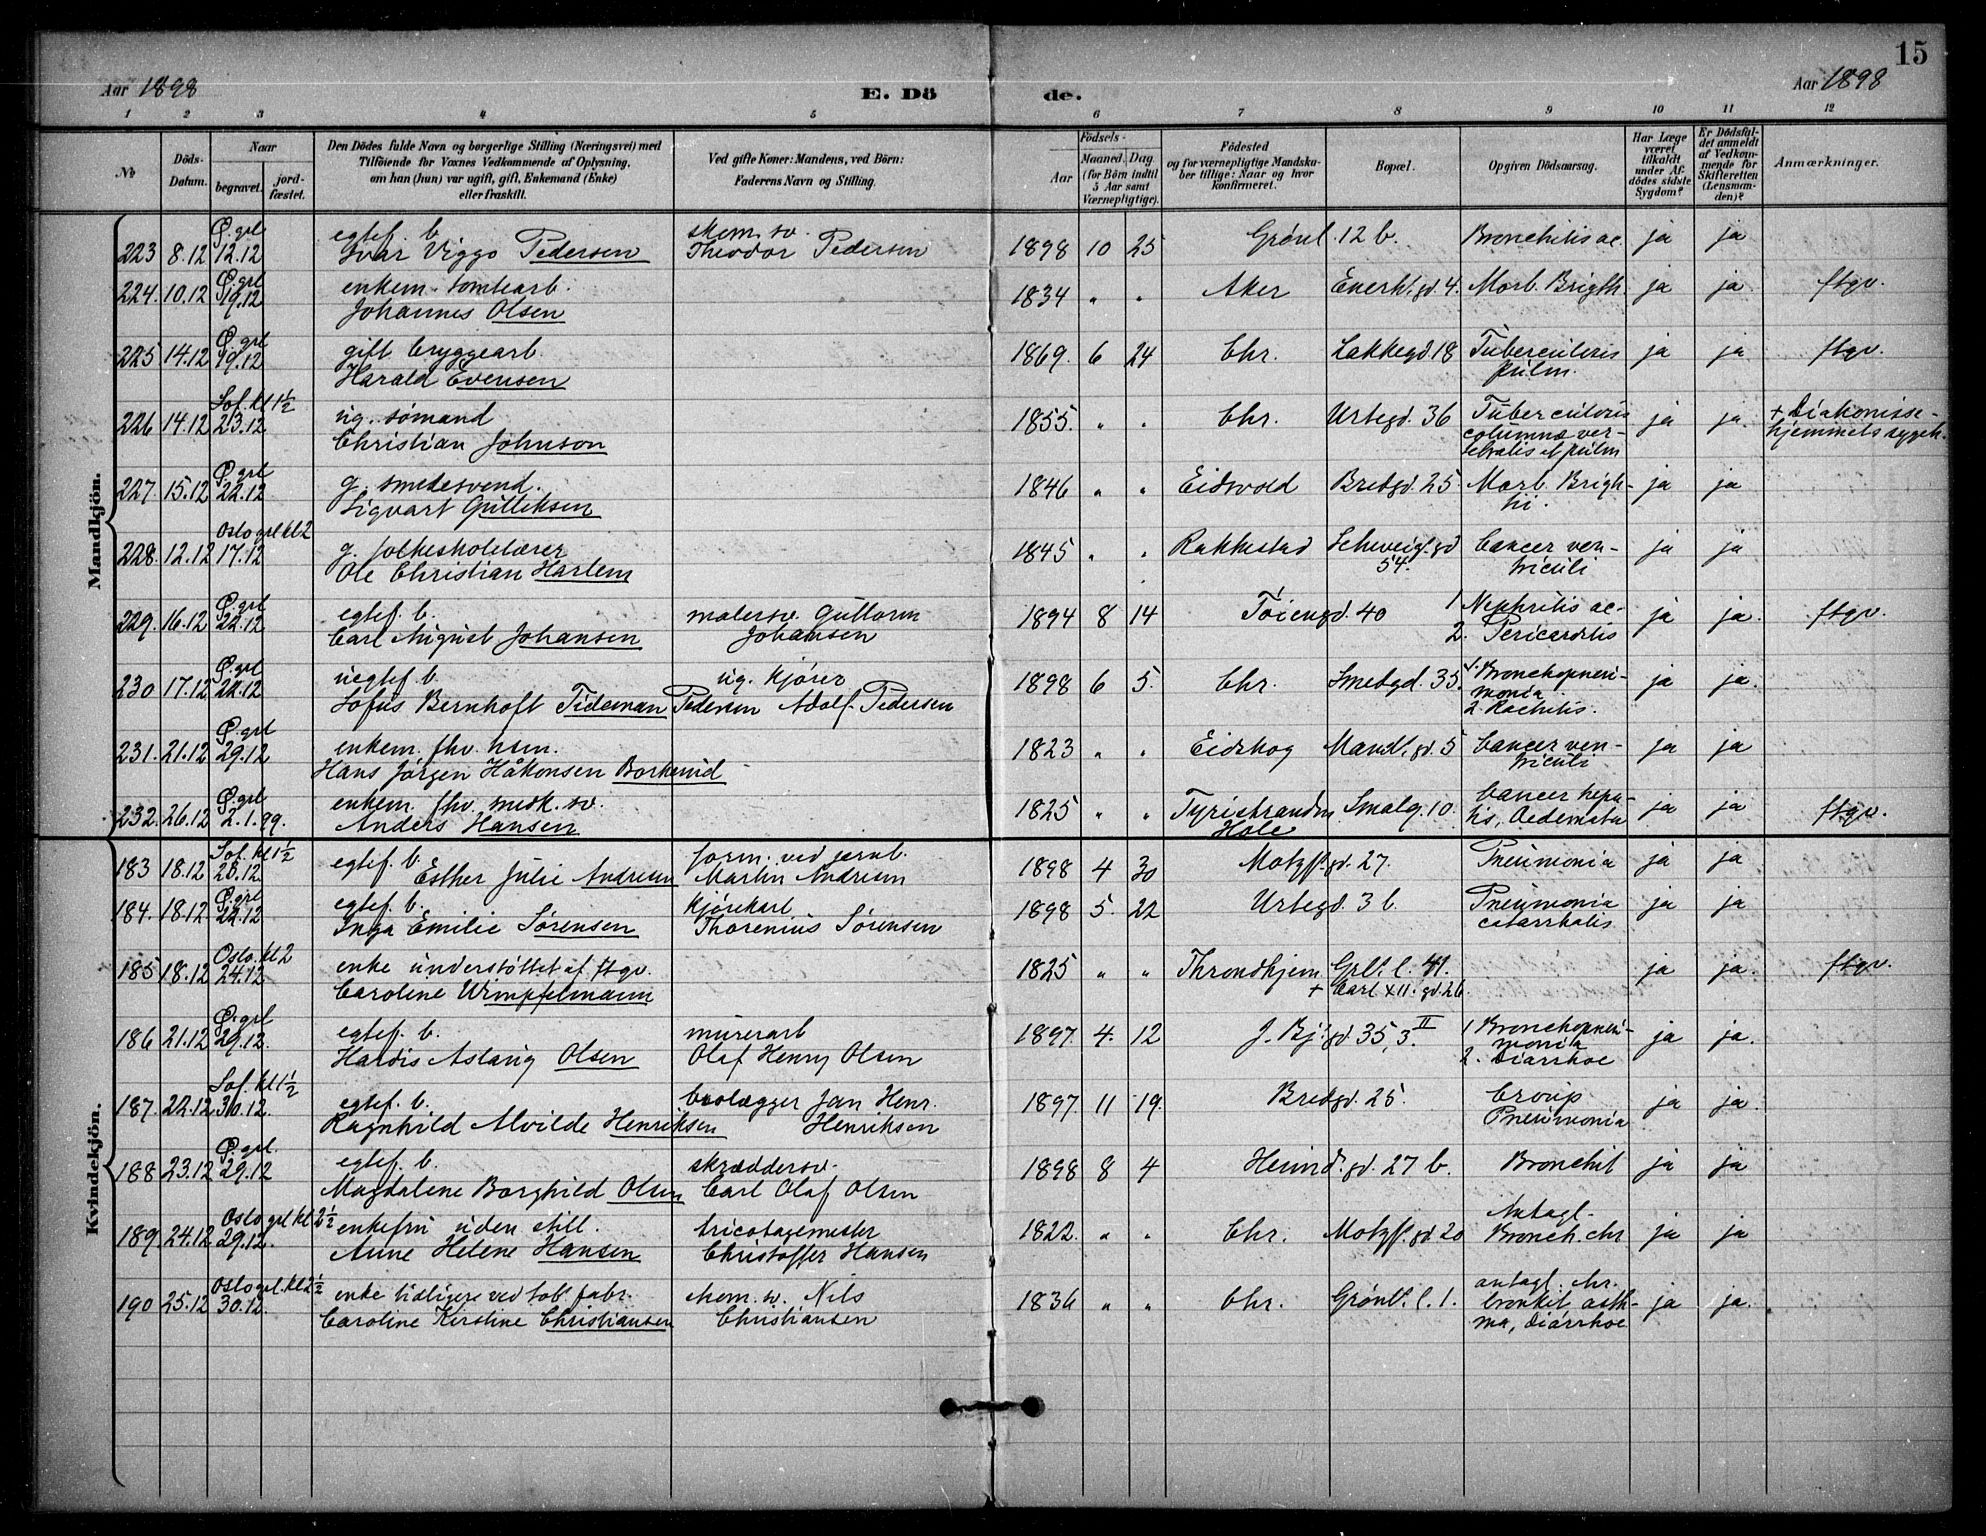 15
Aar 1898 E. Dö de. Aar 1898
1 2 3 4 5 6 7 8 9 10 11 12
No
Döds-Datum.
Naar begravet. jordfæstet.
Den Dödes fulde Navn og borgerlige Stilling (Næringsvei) med Tilföiende for Voxnes Vedkommende af Oplysning, om han (hun) var ugift, gift, Enkemand (Enke) eller fraskilt.
Ved gifte Koner: Mandens, ved Börn: Faderens Navn og Stilling.
Födsels-
Aar
Maaned. Dag (for Börn indtil 5 Aar samt Værnepligtige).
Födested og for værnepligtige Mandskaber tillige: Naar og hvor konfirmeret.
Bopæl.
Opgiven Dödsaarsag.
Har Læge været tilkaldt under Afdödes sidste Sygdom?
Er Dödsfaldet anmeldt af Vedkommende for Skifteretten (Lensmanden)?
Anmærkninger.
Mandkjön.
Ø. grl egtef. b. skom. sv.
223 8.12 12.12 Ivar Viggo Pedersen Theodor Pedersen 1898 10 25 Grönl. 12 b. Bronchitis ac. ja ja
Ø. grl enkem. tomtearb.
224. 10.12 19.12 Johannes Olsen 1834 " " Aker Enerh. gd. 4. Morb. Brigth. ja ja. ftgv.
Ø. grl gift bryggearb.
225 14.12 19.12 Harald Evensen 1869. 6 24 Chr. Lakkegd 18 Tuberculosis pulm. ja ja. ftgv.
Sof. kl 1½ ug. sömand
226 14.12 23.12 Christian Johnson 1855. " " Chr. Urtegd. 36 Tuberculosis columnæ vertebralis et pulm ja ja. + Diakonissehjemmets sygeh.
Ø. grl g. smedesvend.
227. 15.12 22.12 Sigvart Gulliksen 1846 " " Eidsvold Bredgd. 25. Morb. Brighti. ja ja
Oslo grl kl 2 g. folkeskolelærer
228. 12.12 17.12 Ole Christian Harlem 1845 " " Rakkestad Schweig. gd 54. Cancer ventriculi ja ja
Ø. grl egtef. b. malersv. Guttorm
229. 16.12 22.12 Carl August Johansen Johansen 1894 8 14 Töiengd. 40 1 Nephritis ac. 2. Pericarditis ja ja. ftgv.
Ø. grl uegtef. b. ug. kjörer
230 17.12 22.12 Sofus Bernhoft Tideman Pedersen Adolf Pedersen 1898 6 5. Chr. Smedgd. 35. 1. Bronchopneumonia 2. Rachitis. ja ja.
Ø. grl enkem. fhv. hsm.
231. 21.12 29.12 Hans Jörgen Håkonsen 1823 " " Eidskog Mandl. gd. 5 Cancer ventriculi ja ja
Ø. grl enkem. fhv. snedk. sv.
232. 26.12 2.1.99. Anders Hansen 1825 " " Tyristranden Hole Smalg. 10. Cancer hepatis, Oedemata ja ja ftgv.
Kvindekjön.
Sof. kl 1½ egtef. b. form. ved jernb.
183 18.12 23.12 Esther Julie Andresen Martin Andresen 1898 4 30 Motzf. gd. 27. Pneumonia ja ja
Ø. grl egtef. b. kjörekarl
184. 18.12 22.12 Inga Emilie Sörensen Thorenius Sörensen 1898 5. 22 Urtegd. 3 b. Pneumonia catarrhalis ja ja
Oslo. kl 2 enke understöttet af ftgv.
185 18.12 24.12 Caroline Wimpfelmann 1825 " " Throndhjem Grl. l. 41. + Carl XII. gd. 26. ja ja. ftgv.
Ø. grl egtef. b. murerarb
186 21.12 29.12. Hardis Aslaug Olsen Olaf Henry Olsen 1897. 4. 12 J. Bj. gd 35, 3. II 1 Bronchopneumonia 2. Diarrhoe ja ja.
Sof. kl 1½ egtef. b. brolægger Jan Henr.
187. 22.12 30.12. Ragnhild Alvilde Henriksen Henriksen 1897 11 19. Bredgd. 25. Croup Pneumonia ja ja.
Ø. grl. egtef. b. skræddersv.
188 23.12 29.12 Magdalene Borghild Olsen Carl Olaf Olsen 1898 8 4 Heimd. gd. 27 b. Bronchit ja ja
Oslo grl kl 2½ enkefru uden still. tricotagemester
189. 24.12 29.12. Anne Helene Hansen Christoffer Hansen 1822. " " Chr. Motzf. gd. 20 Antagl. Bronch. chr. ja ja
Oslo grl. kl 2½ enke tidligere ved tob. fabr. skom. sv. Nils
190 25.12 30.12. Caroline Kirstine Christiansen Christiansen 1836 " " Chr. Grönl. l. 1. antagl. chr. bronkit, asthma, diarrhoe ja ja.